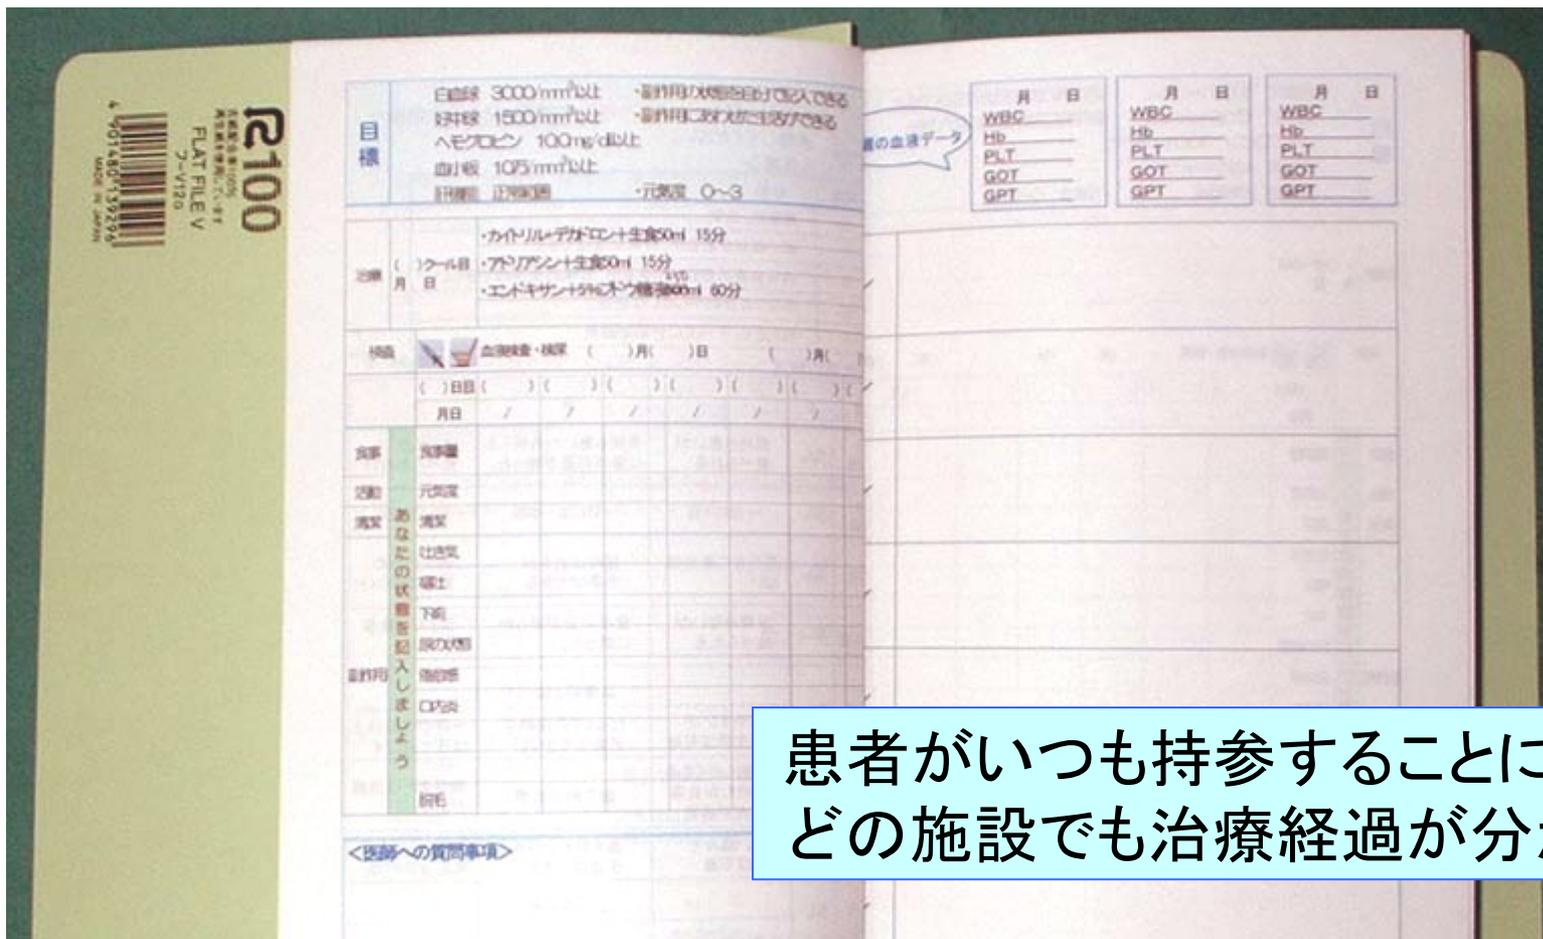 R100
古紙配合率100%
再生紙を使用しています
FLAT FILE V
フ-V12G
4 901480 139296
MADE IN JAPAN
目標
白血球 3000/mm³以上 ・副作用の状態を自分で記入できる
好中球 1500/mm³以上 ・副作用にあわせた生活ができる
ヘモグロビン 10.0mg/dl以上
血小板 10万/mm³以上
肝機能 正常範囲 ・元気度 0～3
治療
( )クール目
月 日
・カイトリル+デカドロン+生食50ml 15分
・アドリアシン+生食50ml 15分
・エンドキサン+5%ブドウ糖液 60分
検査 血液検査・検尿 ( )月( )日 ( )月(
( )日目 ( ) ( ) ( ) ( ) ( ) ( ) (
月日 / / / / / /
食事 食事量
活動 元気度
清潔 清潔
あなたの状態を記入しましょう
副作用
吐き気
嘔吐
下痢
尿の状態
倦怠感
口内炎
脱毛
<医師への質問事項>
の血液データ
月 日
WBC
Hb
PLT
GOT
GPT
月 日
WBC
Hb
PLT
GOT
GPT
月 日
WBC
Hb
PLT
GOT
GPT
患者がいつも持参することに
どの施設でも治療経過が分